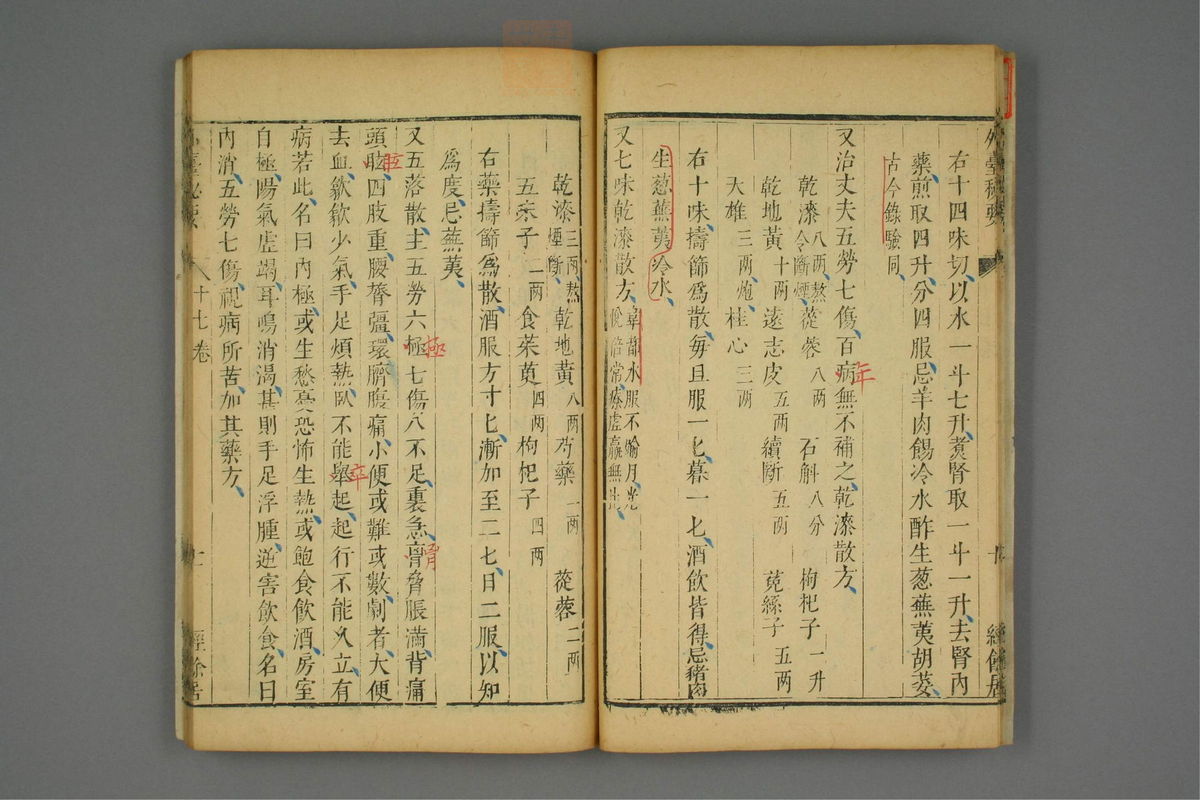 外臺秘要
右十四味切以水一斗七升煮腎取一斗一升去腎內
藥煎取四升分四服忌羊肉餳冷水酢生葱蕪荑胡荽
古今錄驗同
又治丈夫五勞七傷百病無不補之乾漆散方
年
乾漆八兩熬令斷煙 蓯蓉八兩 石斛八分 枸杞子一升
乾地黃十兩 遠志皮五兩 續斷五兩 菟絲子五兩
天雄三兩炮 桂心三兩
右十味擣篩為散每旦服一匕暮一匕酒飲皆得忌豬肉
生葱蕪荑冷水
又七味乾漆散方 水服不踰月光悅倍常療虛羸無比
乾漆三兩熬煙斷 乾地黃八兩 芍藥二兩 蓯蓉二兩
五味子二兩 食茱萸四兩 枸杞子四兩
右藥擣篩為散酒服方寸匕漸加至二匕日二服以知
為度忌蕪荑
又五落散主五勞六極七傷八不足裏急膏脅脹滿背痛
極
胷
頭眩四肢重腰膂彊環臍腹痛小便或難或數劇者大便
眩
去血歙歙少氣手足煩熱臥不能舉起起行不能久立有
卒
病若此名曰內極或生愁憂恐怖生熱或飽食飲酒房室
自極陽氣虛竭耳鳴消渴甚則手足浮腫逆害飲食名曰
內消五勞七傷視病所苦加其藥方
十七卷
經餘居